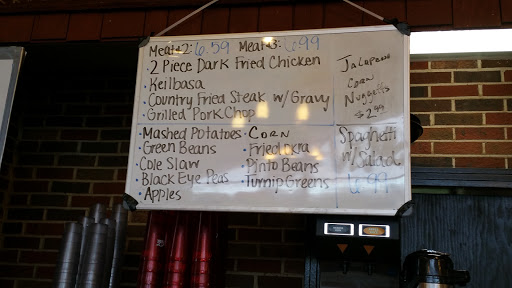 Meat+2: 6.59 Meat+3: 6.99
• 2 Piece Dark Fried Chicken
• Keilbasa
• Country Fried Steak w/ Gravy
• Grilled Pork Chop
Jalapeno
Corn
Nuggetts
$2.99
• Mashed Potatoes
• Green Beans
• Cole Slaw
• Black Eye Peas
• Apples
• Corn
• Fried Okra
• Pinto Beans
• Turnip Greens
Spaghetti
w/ Salad
6.99